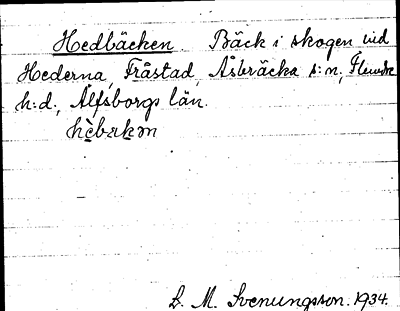 Hedbäcken. Bäck i skogen vid
Hederna, Fråstad, Åsbräcka s:n, Flundre
h:d, Älfsborgs län.
hèbækən
L. M. Svenungsson. 1934.